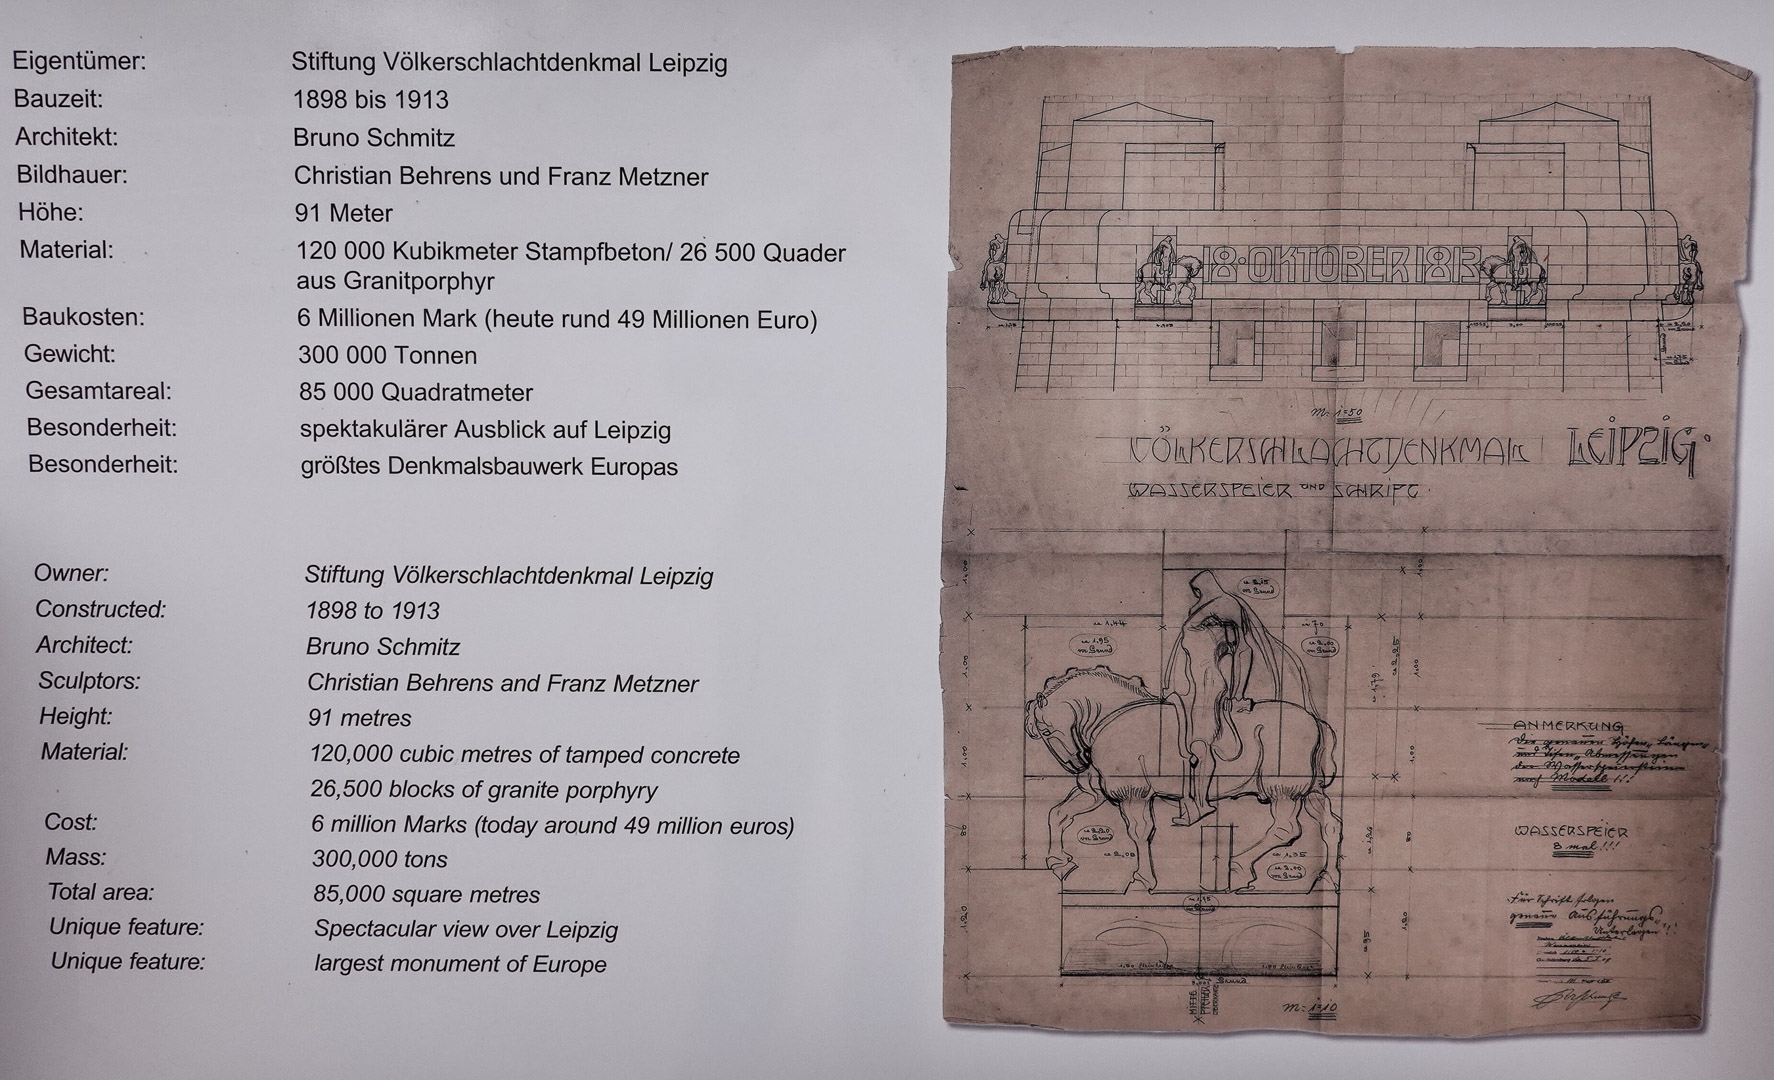 Eigentümer: Stiftung Völkerschlachtdenkmal Leipzig
Bauzeit: 1898 bis 1913
Architekt: Bruno Schmitz
Bildhauer: Christian Behrens und Franz Metzner
Höhe: 91 Meter
Material: 120 000 Kubikmeter Stampfbeton/ 26 500 Quader
aus Granitporphyr
Baukosten: 6 Millionen Mark (heute rund 49 Millionen Euro)
Gewicht: 300 000 Tonnen
Gesamtareal: 85 000 Quadratmeter
Besonderheit: spektakulärer Ausblick auf Leipzig
Besonderheit: größtes Denkmalsbauwerk Europas
Owner: Stiftung Völkerschlachtdenkmal Leipzig
Constructed: 1898 to 1913
Architect: Bruno Schmitz
Sculptors: Christian Behrens and Franz Metzner
Height: 91 metres
Material: 120,000 cubic metres of tamped concrete
26,500 blocks of granite porphyry
Cost: 6 million Marks (today around 49 million euros)
Mass: 300,000 tons
Total area: 85,000 square metres
Unique feature: Spectacular view over Leipzig
Unique feature: largest monument of Europe
18·OKTOBER 1813
M= 1=50
VÖLKERSCHLACHTDENKMAL LEIPZIG·
WASSERSPEIER UND SCHRIFT·
ANMERKUNG
Die genauen Höhen, Längen
und Tifen, Abmessungen
der Wassserspeiersteine
nach Modell!!!
WASSERSPEIER
8 mal!!!
Für Schrift folgen
genaue Ausführungs-
Unterlagen!!
M= 1=10